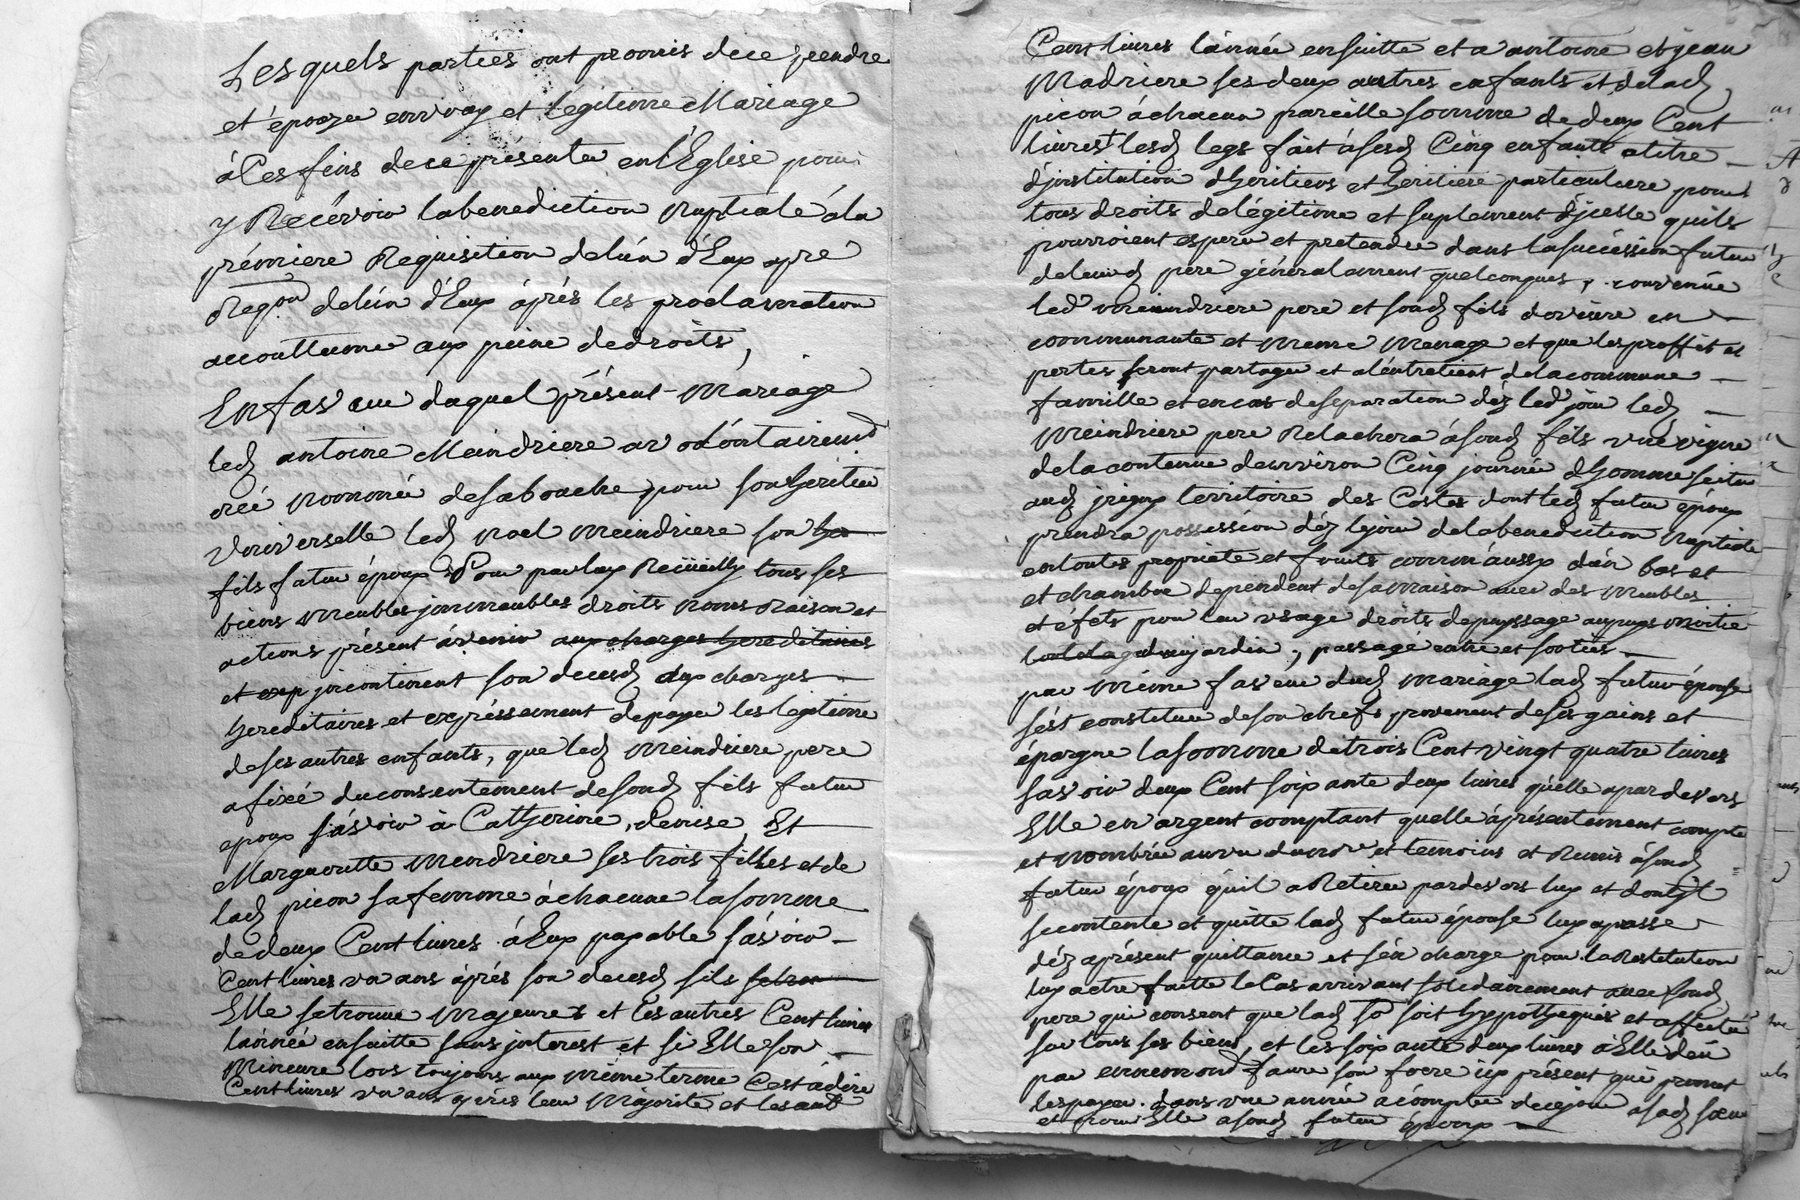 Les quels parties ont promis de ce prendre
et épouzer en vray et Legitime Mariage
à Ces fins de ce présenter en l'Eglise pour
y Recevoir la benediction Nuptiale à la
prémiere Requisition de l'un d'Eux apre
Reqon de l'un d'Eux áprés les proclamation
accouttume aux peine de droits,
En faveur duquel présent Mariage
led antoine Meindriere a volontairemt
créé nommée de sa bouche pour son heritier
Universelle led noel meindriere son her
fils futur époux Pour par luy Reüeilly tous ses
biens meubles jmmeubles droits noms Raison et
actions présent ávenir aux charges hereditaires
et jncontinent son decesd aux charges
hereditaires et expréssement de payer les légitime
de ses autres enfants, que led meindriere pere
a fixé du consentement de sond fils futur
epoux sávoir à Catherine, denise, Et
Margueritte Mendriere ses trois filles et de
lad picon sa femme à chacune la somme
de deux Cent livres á Eux payable sávoir
Cent livres un ans áprés son decesd sils
Elle se trouve majeure et les autres Cent livres
lánnée ensuitte sans jnterest et si Elle son
Mineure lors toujours aux même terme C'est á dire
Cent livres un ans aprés leur Majorité et les aut
Cent livres lánnée ensuitte et a antoine et jean
Madriere ses deux autres enfants et de lad
picon á chacun pareille somme de deux Cent
livres lesd legs fait á sesd Cinq enfants a titre
d'jnstitution d'heritiers et heritiere particuliere pour
tous droits de légitime et suplement d'jcelle quils
pourroient esperer et pretendre dans la succéssion future
de leurd pere généralement quelconques, convenüe
led meindriere pere et sond fils de vivre en
communauté et meme menage et que les proffit et
pertes seront partager et a léntretient de la commune
famille et en cas de separation déz led jour led
meindriere pere Relachera á sond fils une vigne
de la contenue d'environ Cinq journée d'homme scitue
aud territoire des Costes dont led futur époux
prendra posséssion déz le jour de la benediction Nuptiale
en toutes proprieté et fruits comm'áussy d'un bas et
et chambre dependent de sa maison avec des meubles
et éfets pour leur usage droits de puyssage au puys moitié
du jardin, passage entré et sorties
par méme faveur dud mariage lad future épouse
s'ést constituée de son chefs provenent de ses gains et
épargne la somme de trois Cent vingt quatre livres
sávoir deux Cent soixante deux livres qu'elle a par devers
Elle en argent comptant quelle á présentement compté
et nombrée au vu du no.re et temoins et Remis á sond
futur époux qu'il a Retiree par devers luy et dont jl
se contente et quitte lad future épouse luy a passe
déz aprésent quittance et s'én charge pour la Restitution
luy actre faitte le Cas arrivant solidairement avec sond
pere qui consent que lad so soit hypothequée et affectée
sur tous ses biens, et les soixante deux livres á Elle deü
par faure son frere icy présent qui promet
les payer dans une année á compter de ce jour a sad sœur
et pour Elle a sond futur époux